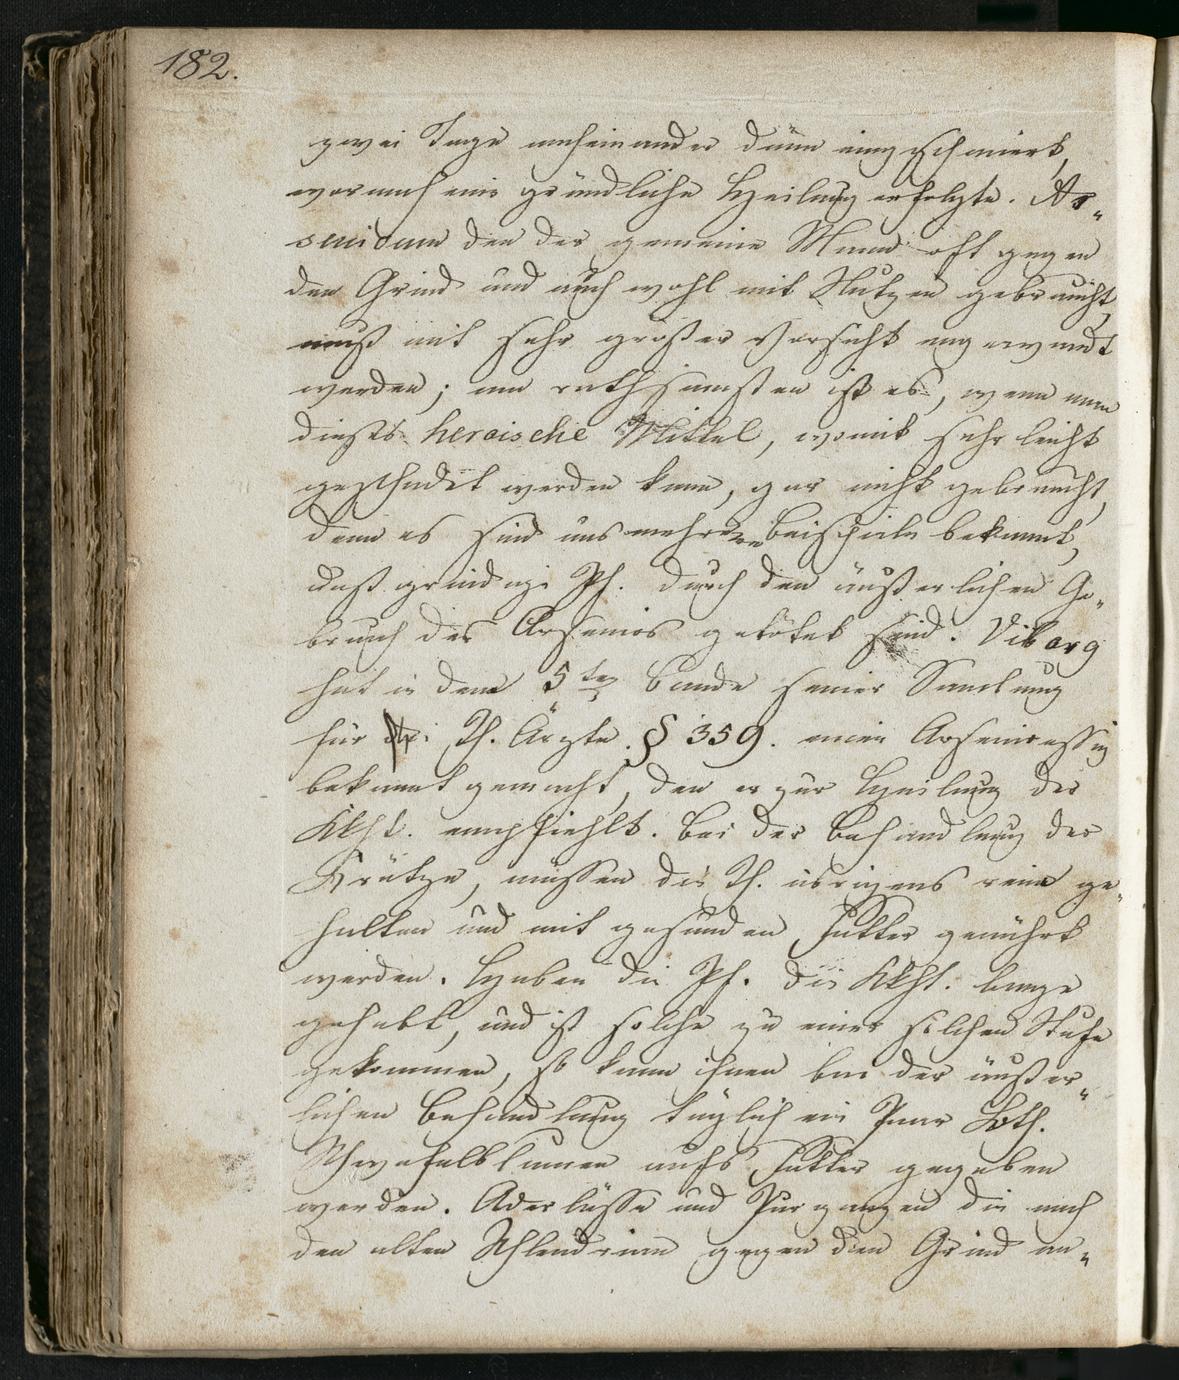 182.
zwei Tage nacheinander dünn eingeschmiert,
wornach eine gründliche Heilung erfolgte. Ar„
senicum den der gemeine Mann oft gegen
den Grind und auch wohl mit Nutzen gebraucht,
muß mit sehr großer Vorsicht angewandt
werden; am rathsamsten ist es, wenn man
dieses heroische Mittel, womit sehr leicht
geschadet werden kann, gar nicht gebraucht,
denn es sind uns mehrere Beispiele bekannt,
daß grindige Pf. durch den äußerlichen Ge„
brauch des Arsenics getötet sind. Viborg
hat in dem 5ten Bande seiner Samlung
für Th. Ärzte. § 359. einen Arsenicessig
bekannt gemacht, den er zur Heilung der
Kkht. empfiehlt. Bei der Behandlung der
Krätze, müssen die Th. übrigens rein ge„
halten und mit gesunden Futter genährt
werden. Haben die Pf. die Kkht. lange
gehabt, und ist solche zu einer solchen Stufe
gekommen, so kann ihnen bei der äußer„
lichen Behandlung täglich ein Paar Loth.
Schwefelblumen aufs Futter gegeben
werden. Aderlässe und Purganzen die nach
den alten Schlendrian gegen den Grind an„